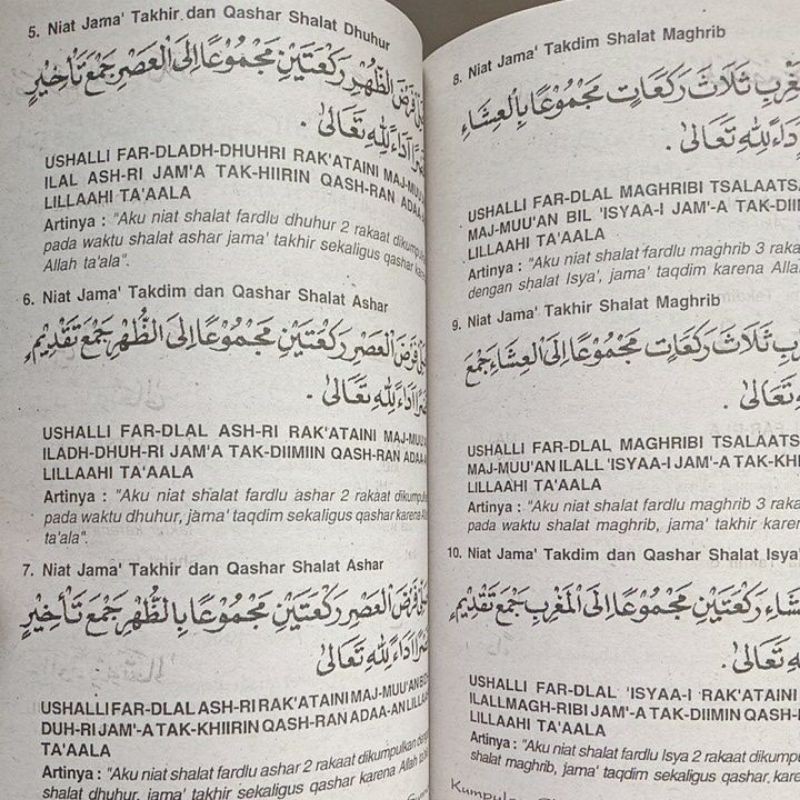 5. Niat Jama' Takhir dan Qashar Shalat Dhuhur
فَرْضَ الظُّهْرِ رَكْعَتَيْنِ مَجْمُوْعًا إِلَى الْعَصْرِ جَمْعَ تَأْخِيْرٍ
أَدَاءً لِلّٰهِ تَعَالَىٰ .
USHALLI FAR-DLADH-DHUHRI RAK'ATAINI MAJ-MUU'
ILAL ASH-RI JAM'A TAK-HIIRIN QASH-RAN ADAA-
LILLAAHI TA'AALA
Artinya : "Aku niat shalat fardlu dhuhur 2 rakaat dikumpulk
pada waktu shalat ashar jama' takhir sekaligus qashar karena
Allah ta'ala".
6. Niat Jama' Takdim dan Qashar Shalat Ashar
فَرْضَ الْعَصْرِ رَكْعَتَيْنِ مَجْمُوْعًا إِلَى الظُّهْرِ جَمْعَ تَقْدِيْمٍ
أَدَاءً لِلّٰهِ تَعَالَىٰ .
USHALLI FAR-DLAL ASH-RI RAK'ATAINI MAJ-MUU'
ILADH-DHUH-RI JAM'A TAK-DIIMIN QASH-RAN ADAA-
LILLAAHI TA'AALA
Artinya : "Aku niat shalat fardlu ashar 2 rakaat dikumpulk
pada waktu dhuhur, jama' taqdim sekaligus qashar karena All
ta'ala".
7. Niat Jama' Takhir dan Qashar Shalat Ashar
فَرْضَ الْعَصْرِ رَكْعَتَيْنِ مَجْمُوْعًا بِالظُّهْرِ جَمْعَ تَأْخِيْرٍ
أَدَاءً لِلّٰهِ تَعَالَىٰ
USHALLI FAR-DLAL ASH-RI RAK'ATAINI MAJ-MUU'AN
DUH-RI JAM'-A TAK-KHIIRIN QASH-RAN ADAA-AN LILLAAHI
TA'AALA
Artinya : "Aku niat shalat fardlu ashar 2 rakaat dikumpulkan
shalat dhuhur, jama' takhir sekaligus qashar karena Allah
8. Niat Jama' Takdim Shalat Maghrib
ثَلَاثَ رَكَعَاتٍ مَجْمُوْعًا بِالْعِشَاءِ
لِلّٰهِ تَعَالَىٰ .
USHALLI FAR-DLAL MAGHRIBI TSALAATS
MAJ-MUU'AN BIL 'ISYAA-I JAM'-A TAK-DIIM
LILLAAHI TA'AALA
Artinya : "Aku niat shalat fardlu maghrib 3 raka
dengan shalat Isya', jama' taqdim karena Allah
9. Niat Jama' Takhir Shalat Maghrib
ثَلَاثَ رَكَعَاتٍ مَجْمُوْعًا إِلَى الْعِشَاءِ جَمْعَ
تَعَالَىٰ .
USHALLI FAR-DLAL MAGHRIBI TSALAATS
MAJ-MUU'AN ILALL 'ISYAA-I JAM'-A TAK-KHI
LILLAAHI TA'AALA
Artinya : "Aku niat shalat fardlu maghrib 3 raka
pada waktu shalat maghrib, jama' takhir karen
10. Niat Jama' Takdim dan Qashar Shalat Isya'
رَكْعَتَيْنِ مَجْمُوْعًا إِلَى الْمَغْرِبِ جَمْعَ تَقْدِيْمٍ
تَعَالَىٰ .
USHALLI FAR-DLAL 'ISYAA-I RAK'ATAINI
ILALL MAGH-RIBI JAM'-A TAK-DIMIN QASH-
LILLAAHI TA'AALA
Artinya : "Aku niat shalat fardlu Isya 2 rakaat dikumpu
shalat maghrib, jama' taqdim sekaligus qashar, kare
Kumpulan